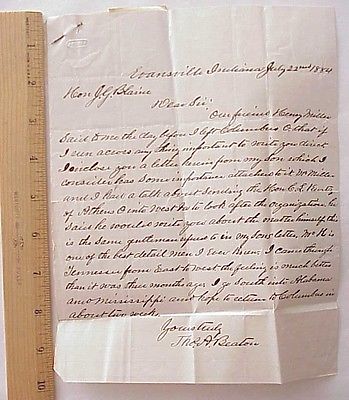 Evansville Indiana July 22nd 1884
Hon J.G. Blaine
Dear Sir:
Our friend Henry Miller
Said to me the day before I left Columbus O. that if
I run across any thing important to write you direct
I inclose you a letter herein from my son which I
consider has some importance attached to it Mr Miller
and I had a talk about sending the Hon C.L. Kurtz
of Athens O into West Va to look after the organization, he
said he would write you about the matter himself this
is the same gentleman refered to in my sons letter, Mr K is
one of the best detail men I ever knew, I came through
Tennessee from East to West the feeling is much better
than it was three months ago, I go south into Alabama
and Mississippi and hope to return to Columbus in
about two weeks.
Yours truly
Thos A Beaton
1
2
3
4
5
6
7
8
9
10